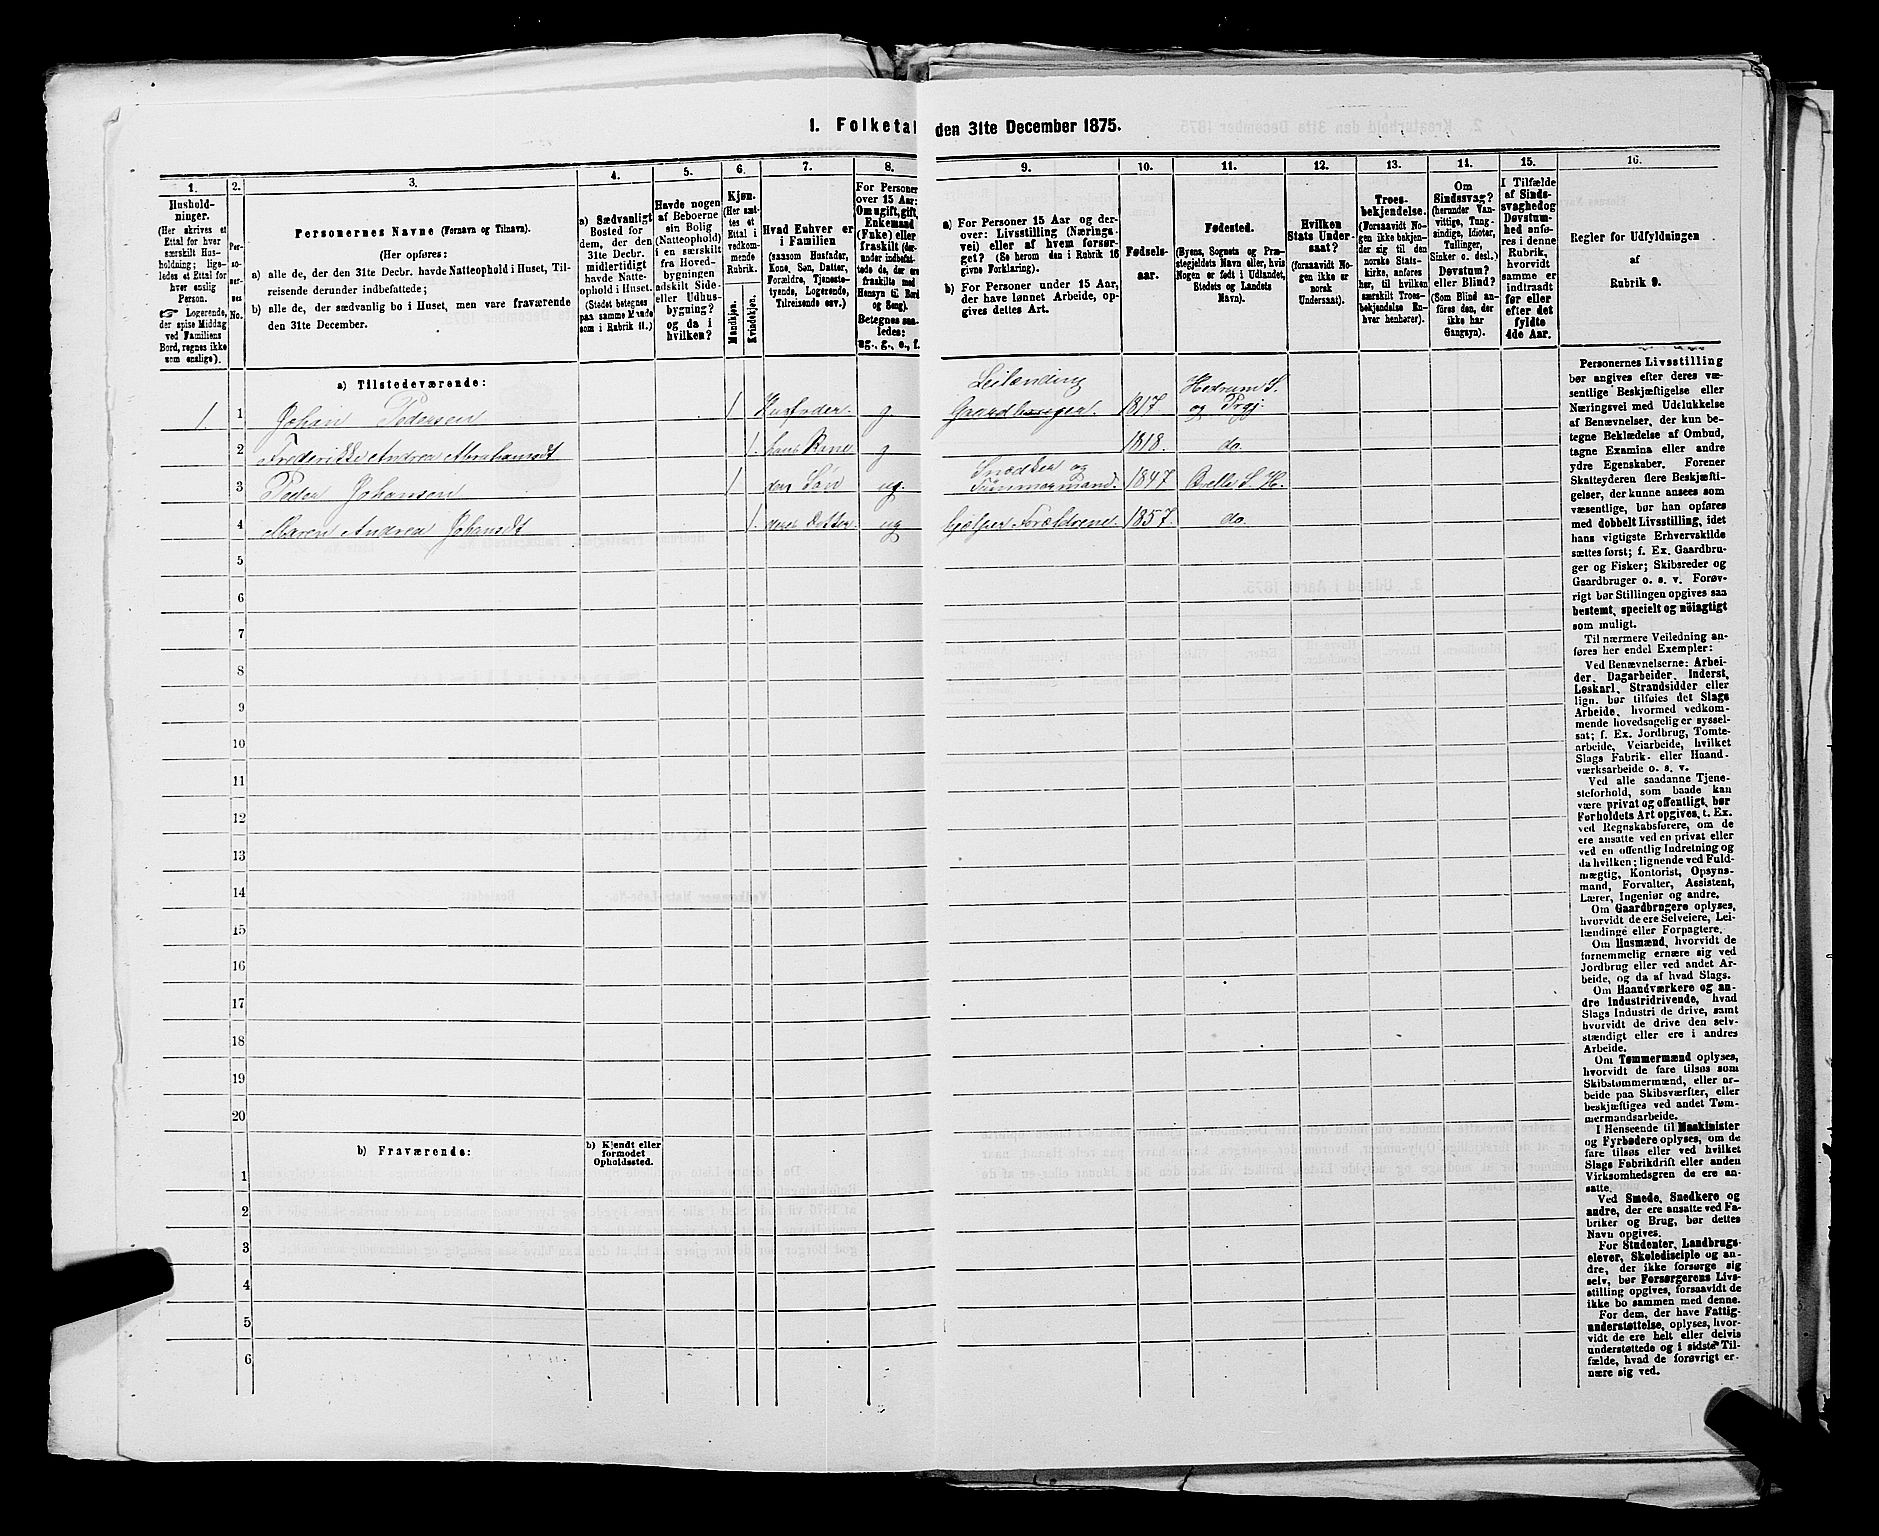 1. Folketal den 31te December 1875.
1.
2.
3.
4.
5.
6.
7.
8.
9.
10.
11.
12.
13.
14.
15.
16.
Hushold-
ninger.
(Her skrives et
Ettal for hver
særskilt Hus-
holdning; lige-
ledes et Ettal for
hver enslig
Person.
☞ Logerende,
der spise Middag
ved Familiens
Bord, regnes ikke
som enslige).
Per-
so-
ner-
nes
No.
Personernes Navne (Fornavn og Tilnavn).
(Her opføres:
a) alle de, der den 31te Decbr. havde Natteophold i Huset, Til-
reisende derunder indbefattede;
b) alle de, der sædvanlig bo i Huset, men vare fraværende
den 31te December.
a) Sædvanligt
Bosted for
dem, der den
31te Decbr.
midlertidigt
havde Natte-
ophold i Huset.
(Stedet betegnes
paa samme Maade
som i Rubrik 11.)
Havde nogen
af Beboerne
sin Bolig
(Natteophold)
i en særskilt
fra Hoved-
bygningen
adskilt Side-
eller Udhus-
bygning?
og da i
hvilken?
Kjøn.
(Her sæt-
tes et
Ettal i
vedkom-
mende
Rubrik.
Mandkjøn.
Kvindekjøn.
Hvad Enhver er
i Familien
(saasom Husfader,
Kone, Søn, Datter,
Forældre, Tjeneste-
tyende, Logerende,
Tilreisende osv.)
For Personer
over 15 Aar:
Om ugift, gift,
Enkemand
(Enke) eller
fraskilt (der-
under indbefat-
tede de, der ere
fraskilte med
Hensyn til Bord
og Seng).
Betegnes saa-
ledes:
ug., g., e., f.
a) For Personer 15 Aar og der-
over: Livsstilling (Nærings-
vei) eller af hvem forsør-
get? (Se herom den i Rubrik 16
givne Forklaring).
b) For Personer under 15 Aar,
der have lønnet Arbeide, op-
gives dettes Art.
Fødsels-
aar.
Fødested.
(Byens, Sognets og Præ-
stegjeldets Navn eller, hvis
Nogen er født i Udlandet,
Stedets og Landets
Navn).
Hvilken
Stats Under-
saat?
(forsaavidt No-
gen ikke er
norsk
Undersaat).
Troes-
bekjendelse.
(Forsaavidt No-
gen ikke bekjen-
der sig til den
norske Stats-
kirke, anføres
her, til hvilken
særskilt Troes-
bekjendelse En-
hver henhører).
Om
Sindssvag?
(herunder Van-
vittige, Tung-
sindige, Idioter,
Tullinger,
Sinker o. desl.)
Døvstum?
eller Blind?
(Som Blind an-
føres den, der
ikke har
Gangsyn).
I Tilfælde
af Sinds-
svaghed og
Døvstum-
hed anfø-
res i denne
Rubrik,
hvorvidt
samme er
indtraadt
før eller
efter det
fyldte
4de Aar.
Regler for Udfyldningen
af
Rubrik 9.
a) Tilstedeværende:
1 1 Johan Pedersen 1 Husfader. g Leilænding Gaardbruger. 1817. Hedrum S. og Prgj.
2 Frederikke Andrea Abrahamsdt 1. hans Kone g 1818. do.
3 Peder Johansen 1 deres Søn ug. Snedker og Tømmermand. 1847 S. H.
4 Maren Andrea Johansdt 1. deres Datter. ug hjelper Forældrene. 1857. do.
5
6
7
8
9
10
11
12
13
14
15
16
17
18
19
20
b) Fraværende:
b) Kjendt eller
formodet
Opholdssted.
1
2
3
4
5
6
Personernes Livsstilling
bør angives efter deres væ-
sentlige Beskjæftigelse eller
Næringsvei med Udelukkelse
af Benævnelser, der kun be-
tegne Beklædelse af Ombud,
tagne Examina eller andre
ydre Egenskaber. Forener
Skatteyderen flere Beskjæfti-
gelser, der kunne ansees som
væsentlige, bør han opføres
med dobbelt Livsstilling, idet
hans vigtigste Erhvervskilde
sættes først; f. Ex. Gaardbru-
ger og Fisker; Skibsreder og
Gaardbruger o. s. v. Forøv-
rigt bør Stillingen opgives saa
bestemt, specielt og nöiagtigt
som muligt.
Til nærmere Veiledning an-
føres her endel Exempler:
Ved Benævnelserne: Arbei-
der, Dagarbeider, Inderst,
Løskarl, Strandsidder eller
lign. bør tilføies det Slags
Arbeide, hvormed vedkom-
mende hovedsagelig er syssel-
sat; f. Ex. Jordbrug, Tomte-
arbeide, Veiarbeide, hvilket
Slags Fabrik- eller Haand-
værksarbeide o. s. v.
Ved alle saadanne Tjene-
steforhold, som baade kan
være privat og offentligt, bør
Forholdets Art opgives, t. Ex.
ved Regnskabsførere, om de
ere ansatte ved en privat eller
ved en offentlig Indretning og
da hvilken; lignende ved Fuld-
mægtig, Kontorist, Opsyns-
mand, Forvalter, Assistent,
Lærer, Ingeniør og andre.
Om Gaardbrugere oplyses,
hvorvidt de ere Selveiere, Lei-
lændinge eller Forpagtere.
Om Husmænd, hvorvidt de
fornemmelig ernære sig ved
Jordbrug eller ved andet Ar-
beide, og da af hvad Slags.
Om Haandværkere og an-
dre Industridrivende, hvad
Slags Industri de drive, samt
hvorvidt de drive den selv-
stændigt eller ere i andres
Arbeide.
Om Tømmermænd oplyses,
hvorvidt de fare tilsøs som
Skibstømmermænd, eller ar-
beide paa Skibsværfter, eller
beskjæftiges ved andet Tøm-
mermandsarbeide.
I Henseende til Maskinister
og Fyrbødere oplyses, om de
fare tilsøs eller ved hvilket
Slags Fabrikdrift eller anden
Virksomhedsgren de ere an-
satte.
Ved Smede, Snedkere og
andre, der ere ansatte ved Fa-
briker og Brug, bør dettes
Navn opgives.
For Studenter, Landbrugs-
elever, Skoledisciple og an-
dre, der ikke forsørge sig
selv, bør Forsørgerens Livs-
stilling opgives, forsaavidt de
ikke bo sammen med denne.
For dem, der have Fattig-
understøttelse, oplyses, hvor-
vidt de ere helt eller delvis
understøttede og i sidste Til-
fælde, hvad de forøvrigt er-
nære sig ved.